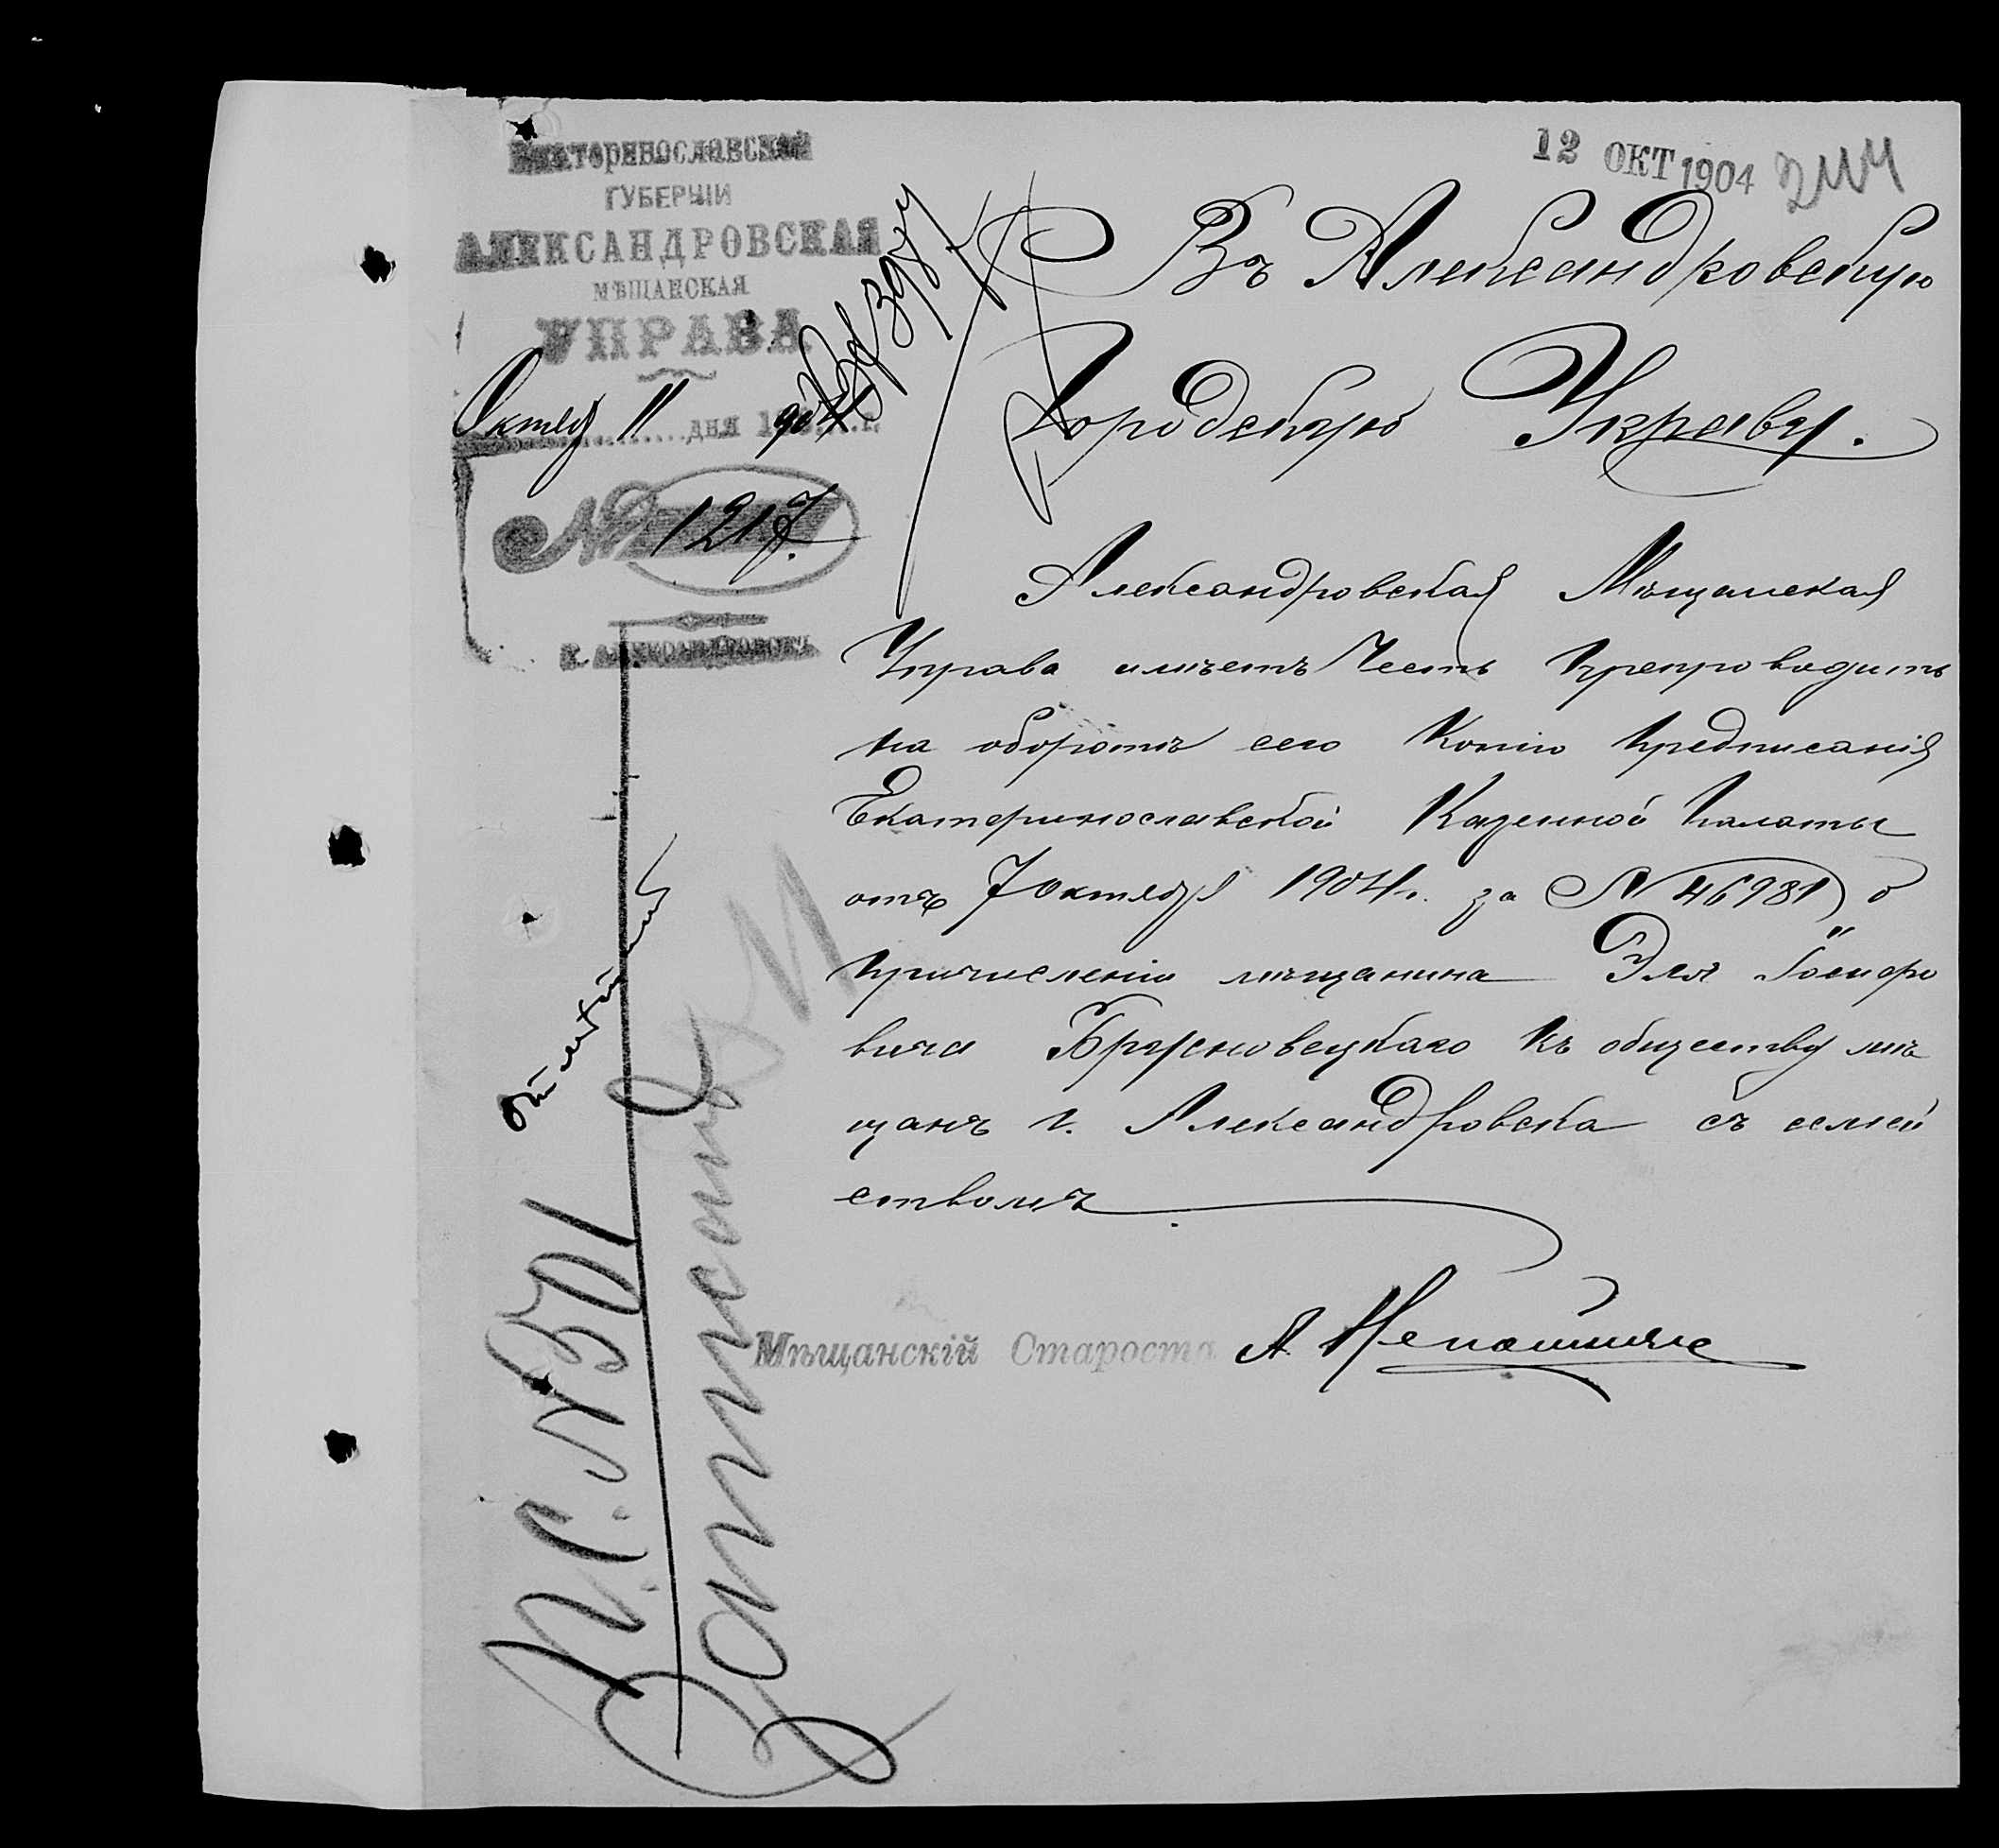 Екатеринославской
ГУБЕРНІИ
АЛЕКСАНДРОВСКАЯ
МѢЩАНСКАЯ
УПРАВА
Октяб 11 дня 1904 г.
№ 1217.
Г. АЛЕКСАНДРОВСКЪ
12 ОКТ 1904
Въ Александровскую
Городскую Управу.
Александровская Мѣщанская
Управа имѣетъ Честь препроводить
на оборотѣ сего Копію предписанія
Екатеринославской Казенной Палаты
отъ 7 октября 1904 г. за № 46981 о
причисленіи мѣщанина Эля
вича къ обществу мѣ
щанъ г. Александровска съ семей
ствомъ
Мѣщанскій Староста А.
П.С. № 301